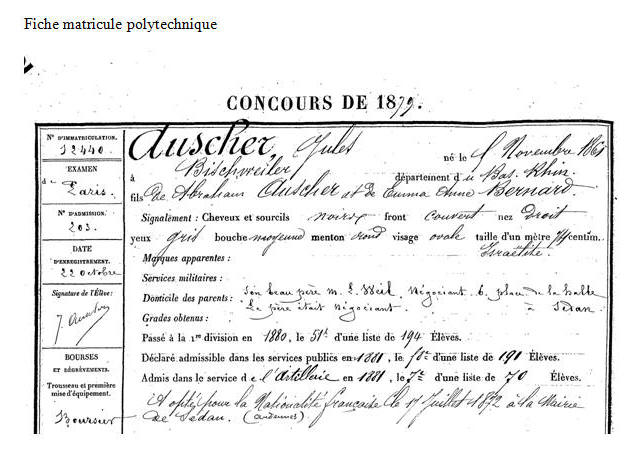 Fiche matricule polytechnique
CONCOURS DE 1879.
N° D'IMMATRICULATION.
12440
EXAMEN
de Paris.
N° D'ADMISSION.
203.
DATE
D'ENREGISTREMENT.
22 octobre
Signature de l'Élève:
J. Auscher
BOURSES
ET DÉGRÈVEMENTS.
Trousseau et première
mise d'équipement.
Boursier
Auscher, Jules né le Novembre
à Bischweiler département du Bas. Rhin.
fils de Abraham Auscher et de Emma Anne Bernard.
Signalement : Cheveux et sourcils noirs front couvert nez Droit
yeux gris bouche moyenne menton rond visage ovale taille d'un mètre centim.
Marques apparentes : Israëlite.
Services militaires :
Domicile des parents : Son beau père M. L. Weil, Négociant. 6. place de la halle
Le père était Négociant. à Sedan.
Grades obtenus :
Passé à la 1re division en 1880, le 51e d'une liste de 194 Élèves.
Déclaré admissible dans les services publics en 1881, le d'une liste de 191 Élèves.
Admis dans le service de l'Artillerie en 1881, le 7e d'une liste de 70 Élèves.
A opté pour la Nationalité française le 17 Juillet 1872 à la Mairie
de Sedan. (Ardennes)